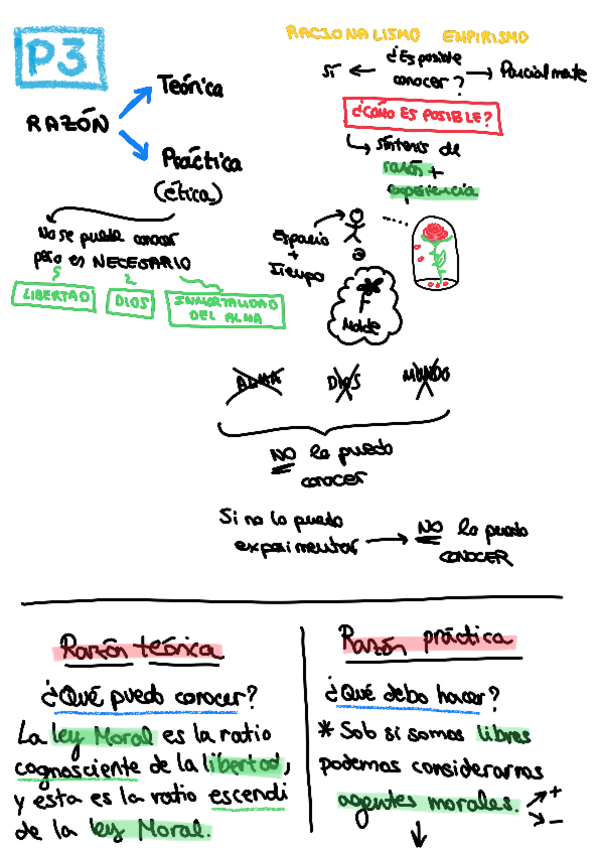 P3
RACIONALISMO EMPIRISMO
¿Es posible
conocer?
SÍ
Parcialmente
¿CÓMO ES POSIBLE?
síntesis de
razón +
experiencia
RAZÓN
Teórica
Práctica
(ética)
No se puede conocer
pero es NECESARIO
LIBERTAD
DIOS
INMORTALIDAD
DEL ALMA
Espacio
+
Tiempo
Molde
ALMA
DIOS
MUNDO
NO lo puedo
conocer
Si no lo puedo
experimentar
NO lo puedo
CONOCER
Razón teórica
¿Qué puedo conocer?
La ley Moral es la ratio
cognosciente de la libertad,
y esta es la ratio escendi
de la ley Moral.
Razón práctica
¿Qué debo hacer?
* Solo si somos libres
podemos considerarnos
agentes morales.
+
-